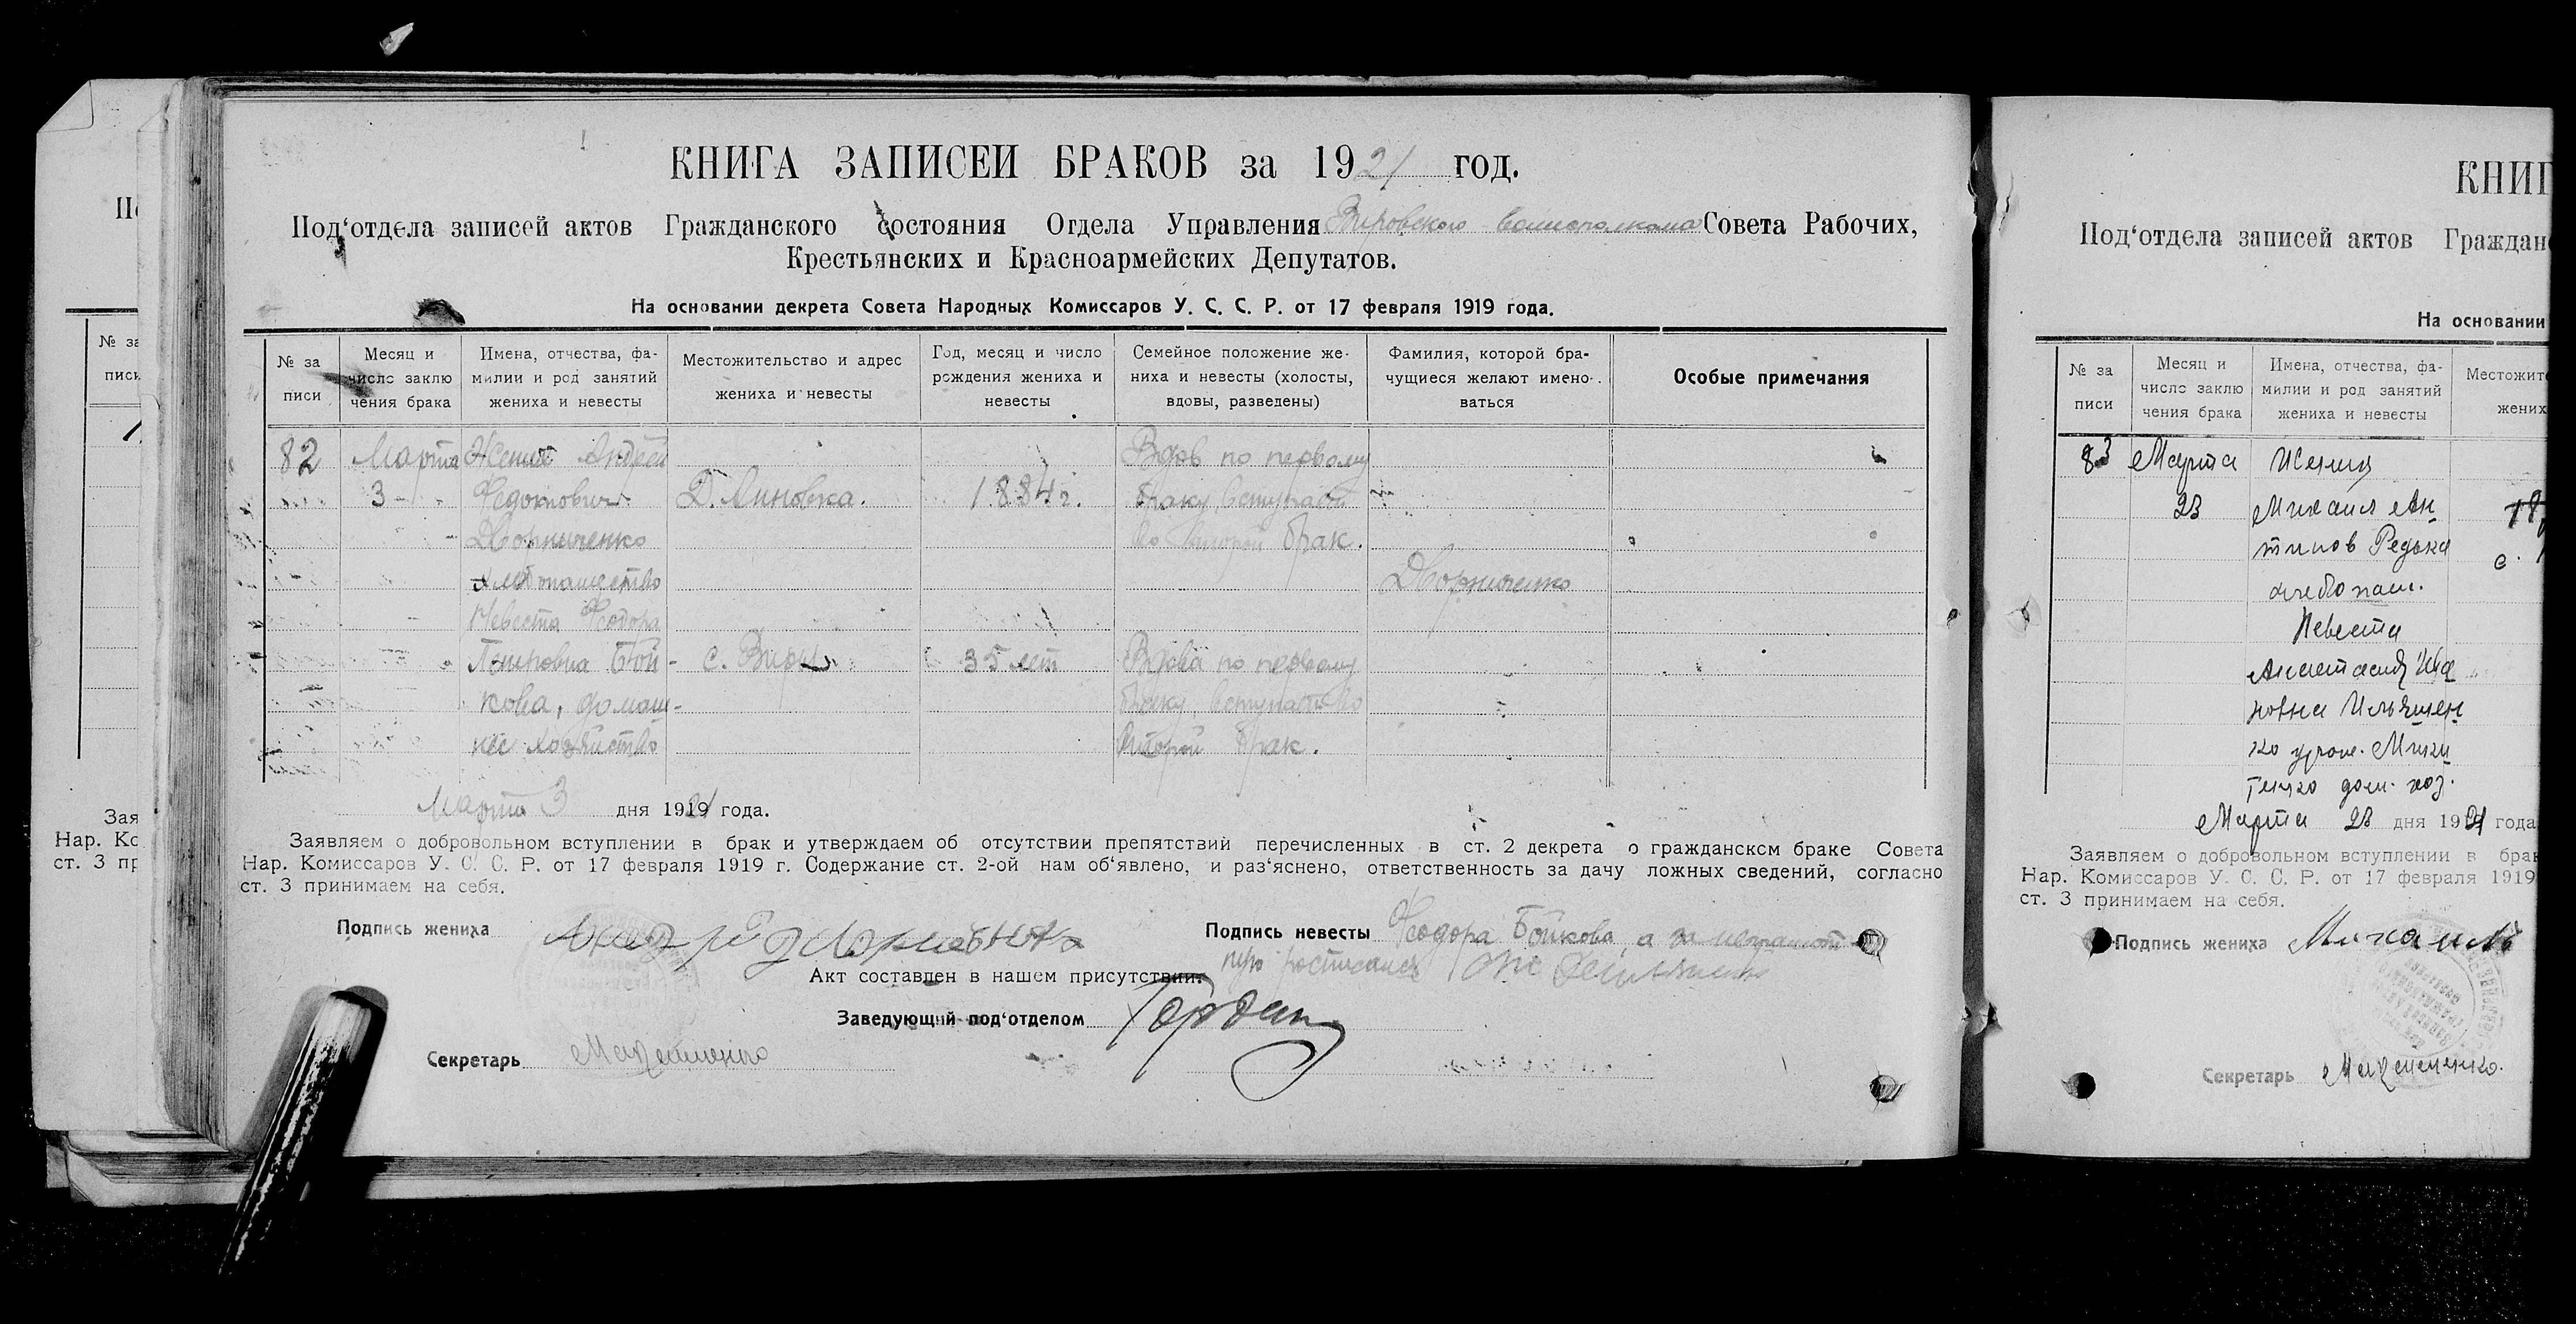 КНИГА ЗАПИСЕЙ БРАКОВ за 1921 год.
Под‘отдела записей актов Гражданского состояния Отдела Управления Вировского волисполкома Совета Рабочих,
Крестьянских и Красноармейских Депутатов.
На основании декрета Совета Народных Комиссаров У. С. С. Р. от 17 февраля 1919 года.
№ за писи
Месяц и число заклю чения брака
Имена, отчества, фа- милии и род занятий жениха и невесты
Местожительство и адрес жениха и невесты
Год, месяц и число рождения жениха и невесты
Семейное положение же- ниха и невесты (холосты, вдовы, разведены)
Фамилия, которой бра- чущиеся желают имено- ваться
Особые примечания
82 Марта Жених Андрей Вдов по первому
3 Федотович Д. Линовка. 1884 г. браку, вступает
Дворниченко во второй брак.
хлебопашество Дворниченко
Невеста Феодора
Петровна Бой- с. Виры 35 лет Вдова по первому
кова, домаш- браку вступает во
нее хозяйство второй брак.
Марта 3 дня 1921 года.
Заявляем о добровольном вступлении в брак и утверждаем об отсутствии препятствий перечисленных в ст. 2 декрета о гражданском браке Совета
Нар. Комиссаров У. С. С. Р. от 17 февраля 1919 г. Содержание ст. 2-ой нам об‘явлено, и раз‘яснено, ответственность за дачу ложных сведений, согласно
ст. 3 принимаем на себя.
Подпись жениха
Подпись невесты Феодора Бойкова, а за неграмот-
ную росписался
Акт составлен в нашем присутствии:
Заведующий под‘отделом Гордин
Секретарь Махотченко
КНИГ
Под‘отдела записей актов Граждан
На основании
№ за писи
Месяц и число заклю чения брака
Имена, отчества, фа- милии и род занятий жениха и невесты
Местожите жених
83 Марта Жених
23 Михаил Ан
типов Редька
хлебопаш.
Невеста
Анастасия Ива
новна Ильяшен
ко урож. Мики
тенко дом. хоз.
Марта 23 дня 1921 года
Заявляем о добровольном вступлении в брак
Нар. Комиссаров У. С. С. Р. от 17 февраля 1919
ст. 3 принимаем на себя.
Подпись жениха Михаил
Секретарь
№ за
писи
Зая
Нар. Ко
ст. 3 пр